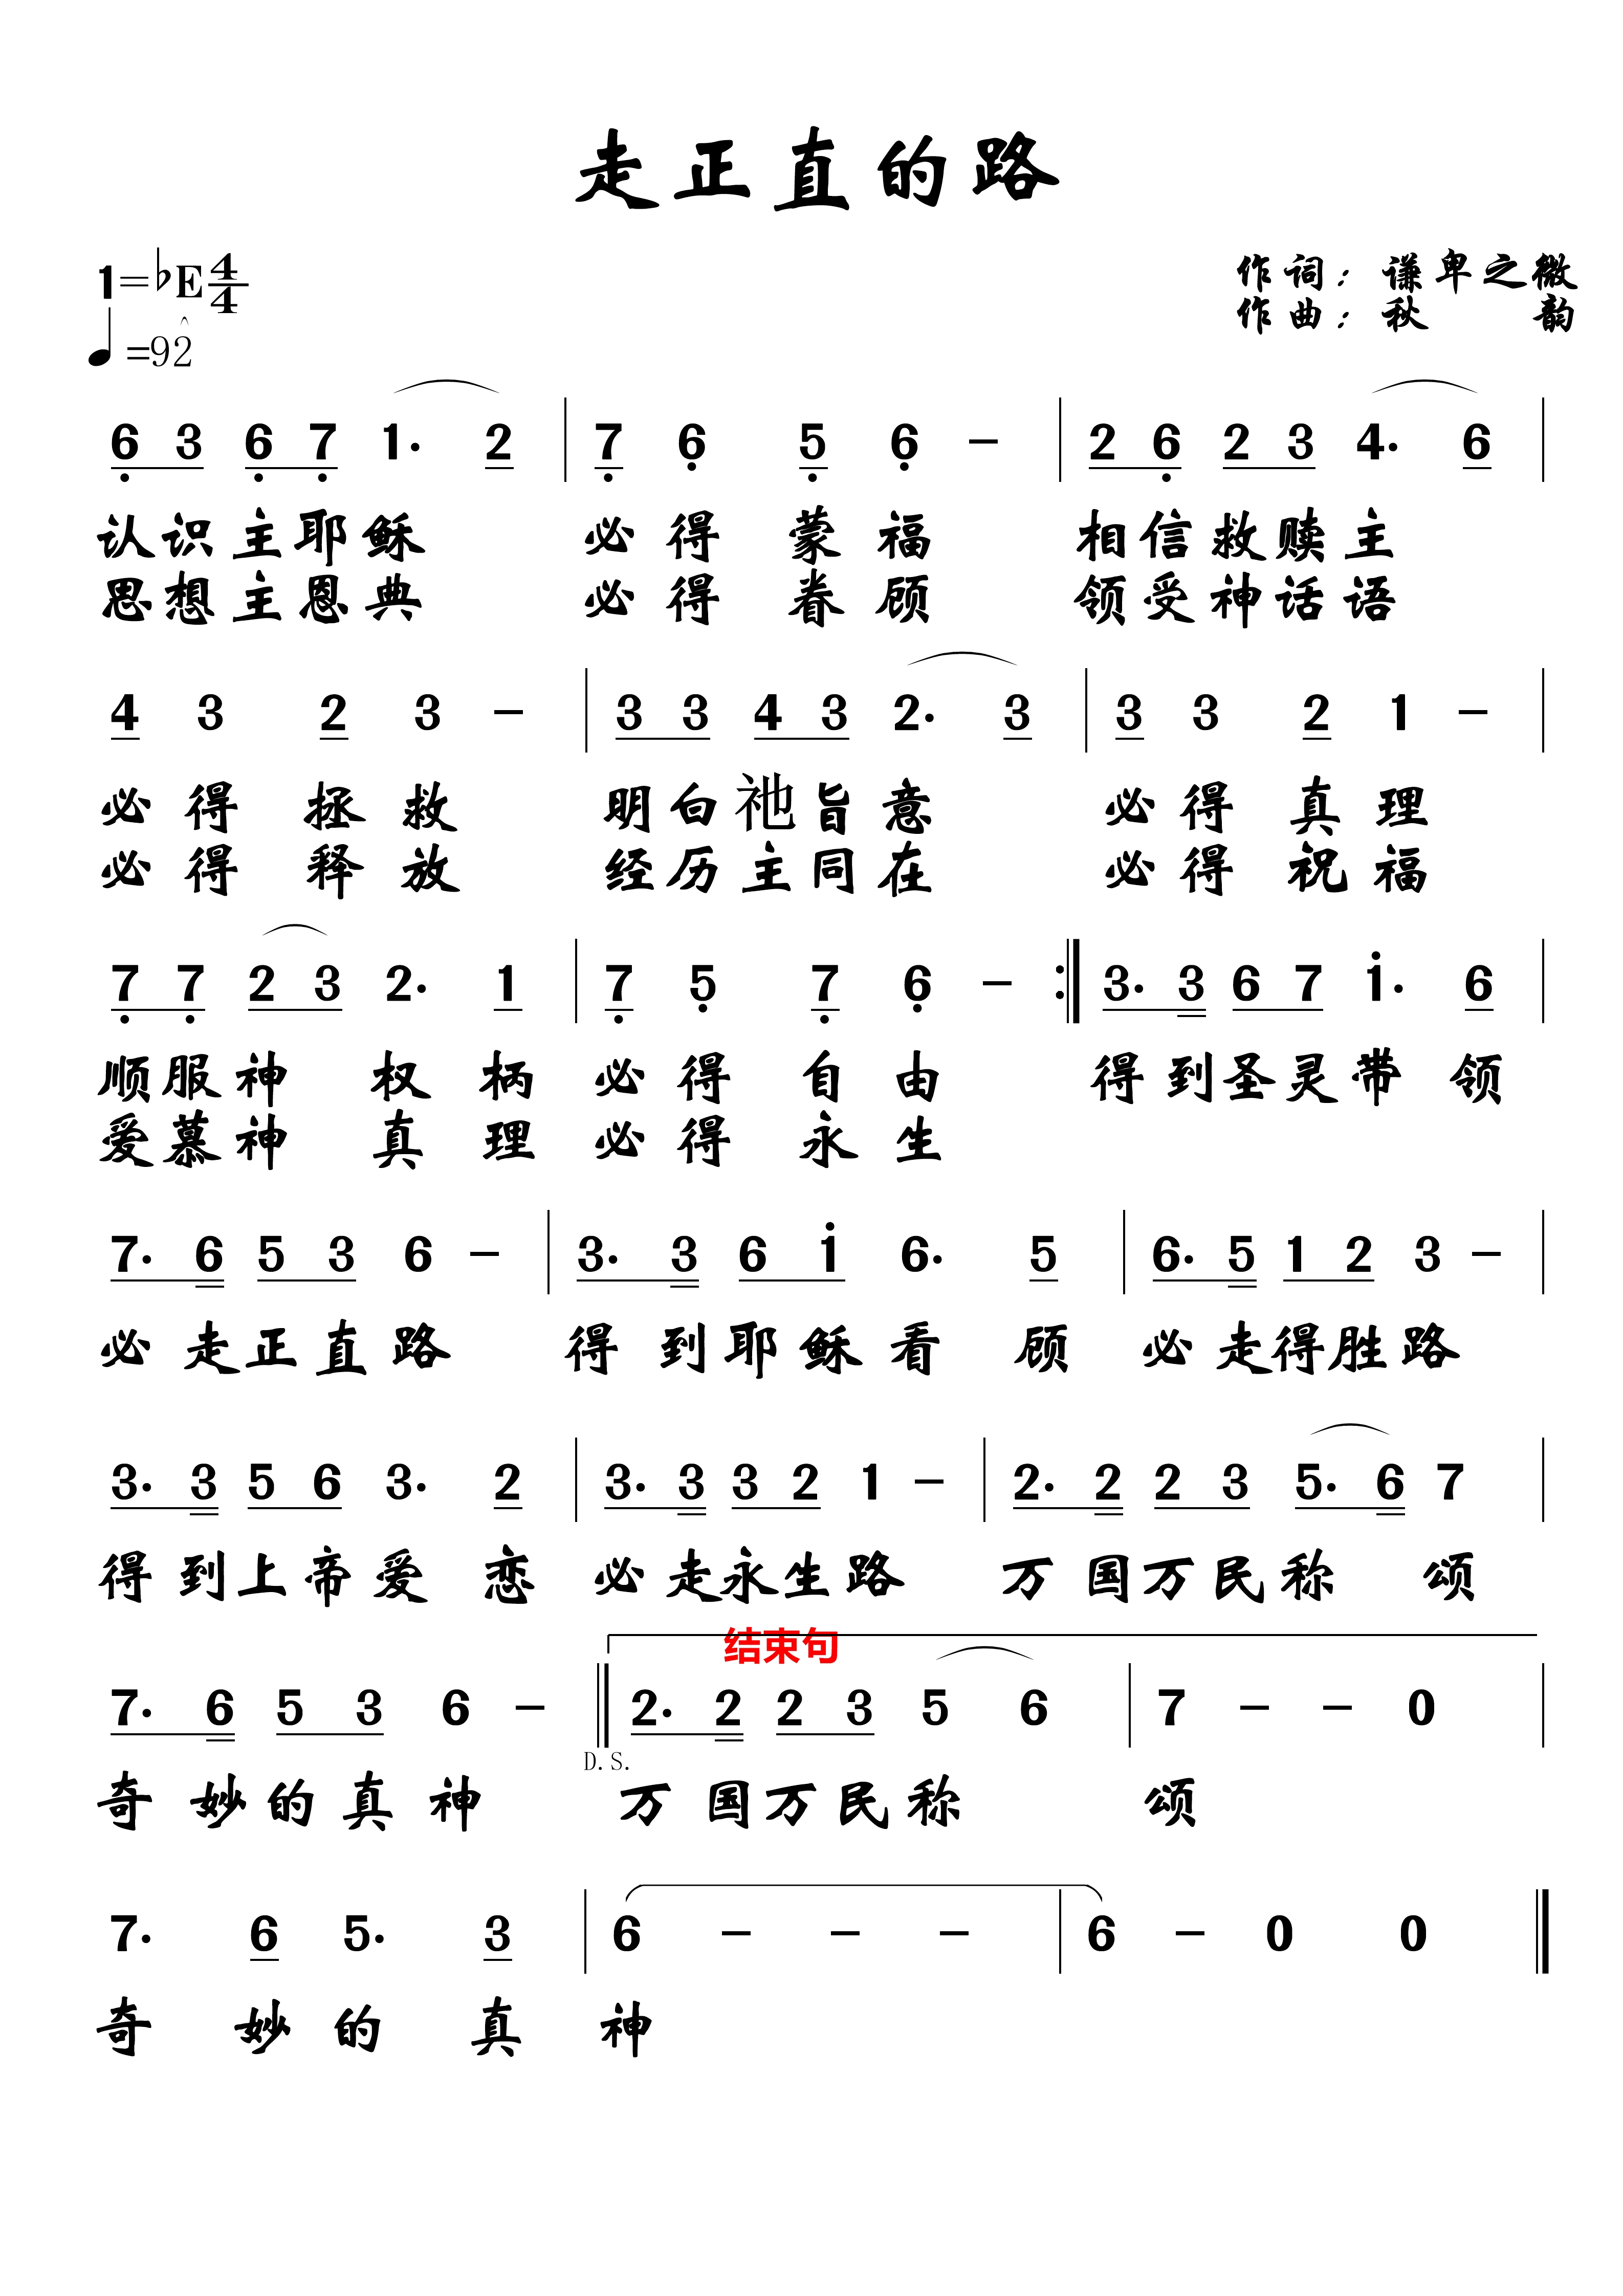 走正直的路
1=♭E 4/4
作词：谦卑之微
♩=92
作曲：秋 韵
6 3 6 7 1. 2 | 7 6 5 6 - | 2 6 2 3 4. 6 |
认识主耶稣 必得蒙福 相信救赎主
思想主恩典 必得眷顾 领受神话语
4 3 2 3 - | 3 3 4 3 2. 3 | 3 3 2 1 - |
必得拯救 明白祂旨意 必得真理
必得释放 经历主同在 必得祝福
7 7 2 3 2. 1 | 7 5 7 6 - :| 3. 3 6 7 1. 6 |
顺服神权柄 必得自由 得到圣灵带领
爱慕神真理 必得永生
7. 6 5 3 6 - | 3. 3 6 1 6. 5 | 6. 5 1 2 3 - |
必走正直路 得到耶稣看顾 必走得胜路
3. 3 5 6 3. 2 | 3. 3 3 2 1 - | 2. 2 2 3 5. 6 7 |
得到上帝爱恋 必走永生路 万国万民称颂
结束句
7. 6 5 3 6 - || 2. 2 2 3 5 6 | 7 - - 0 |
D.S.
奇妙的真神 万国万民称颂
7. 6 5. 3 | 6 - - - | 6 - 0 0 ||
奇妙的真神